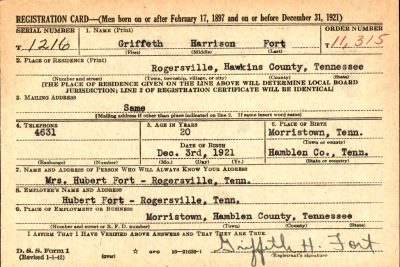 REGISTRATION CARD—(Men born on or after February 17, 1897 and on or before December 31, 1921)
SERIAL NUMBER 1. NAME (Print) ORDER NUMBER
T 1216 Griffeth Harrison Fort T 11,315
(First) (Middle) (Last)
2. PLACE OF RESIDENCE (Print)
Rogersville, Hawkins County, Tennessee
(Number and street) (Town, township, village, or city) (County) (State)
[THE PLACE OF RESIDENCE GIVEN ON THE LINE ABOVE WILL DETERMINE LOCAL BOARD
JURISDICTION; LINE 2 OF REGISTRATION CERTIFICATE WILL BE IDENTICAL]
3. MAILING ADDRESS
Same
[Mailing address if other than place indicated on line 2. If same insert word same]
4. TELEPHONE 5. AGE IN YEARS 6. PLACE OF BIRTH
4631 20 Morristown, Tenn.
DATE OF BIRTH (Town or county)
Dec. 3rd, 1921 Hamblen Co., Tenn.
(Exchange) (Number) (Mo.) (Day) (Yr.) (State or country)
7. NAME AND ADDRESS OF PERSON WHO WILL ALWAYS KNOW YOUR ADDRESS
Mrs. Hubert Fort - Rogersville, Tenn.
8. EMPLOYER'S NAME AND ADDRESS
Hubert Fort - Rogersville, Tenn.
9. PLACE OF EMPLOYMENT OR BUSINESS
Morristown, Hamblen County, Tennessee
(Number and street or R. F. D. number) (Town) (County) (State)
I AFFIRM THAT I HAVE VERIFIED ABOVE ANSWERS AND THAT THEY ARE TRUE.
D. S. S. Form 1 GPO 16—21630-1 Griffeth H. Fort
(Revised 1-5-42) (over) (Registrant's signature)